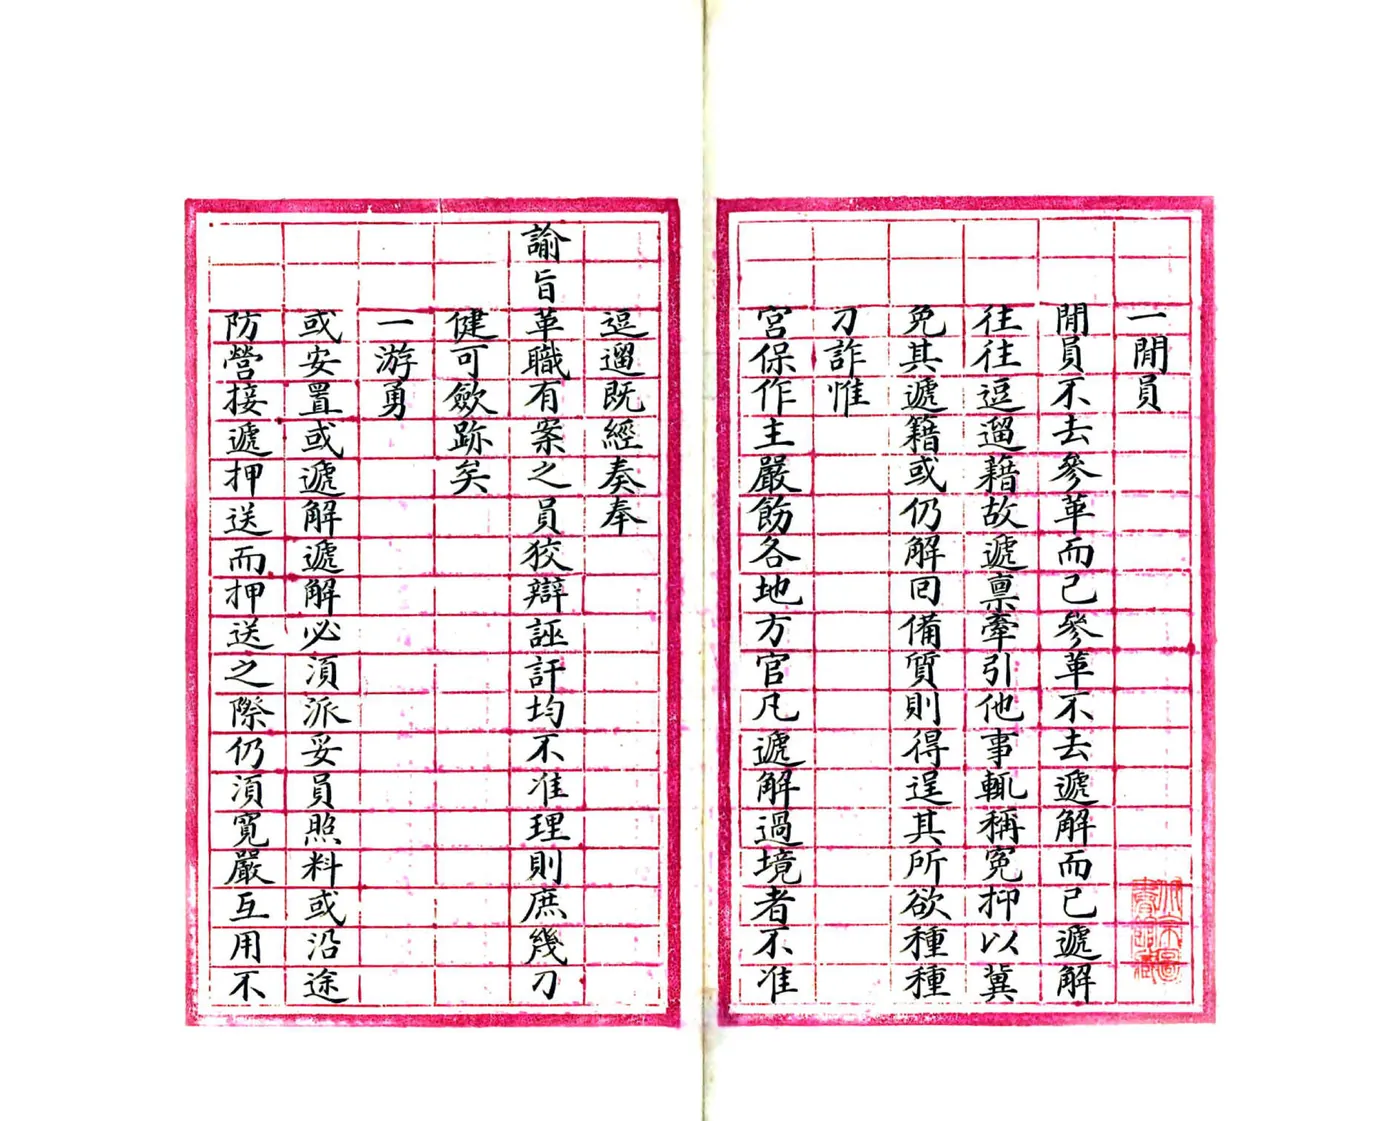 一閒員
閒員不去參革而已參革不去遞解而已遞解
往往逗遛藉故遞禀牽引他事輒稱冤抑以冀
免其遞籍或仍解回備質則得逞其所欲種種
刁詐惟
宮保作主嚴飭各地方官凡遞解過境者不准
逗遛既經奏奉
諭旨革職有案之員狡辯誣訐均不准理則庶幾刁
健可斂跡矣
一游勇
或安置或遞解遞解必須派妥員照料或沿途
防營接遞押送而押送之際仍須寬嚴互用不